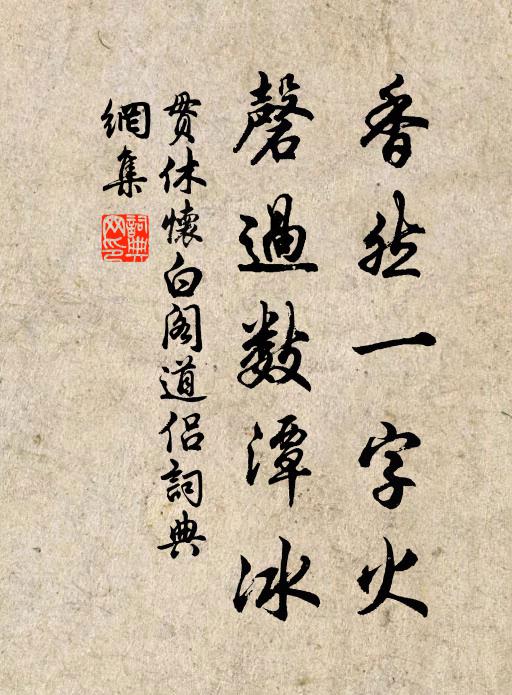 香然一字火
磬過數潭冰
貫休懷白閣道侶詞典
網集
詞典網印